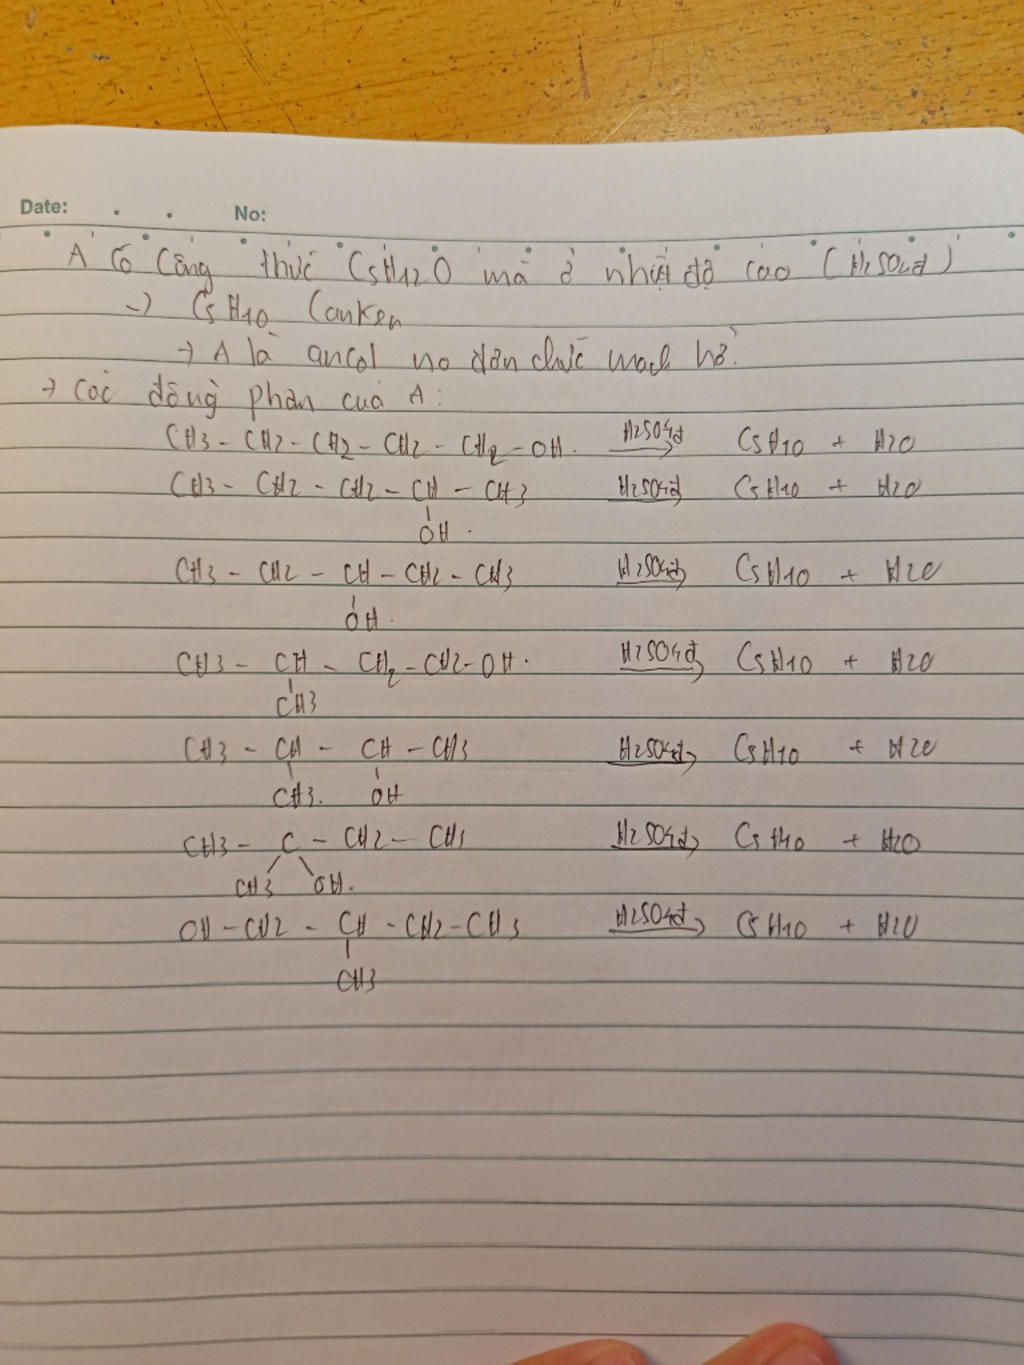 Date: . . No:
A có công thức C5H12O mà ở nhiệt độ cao (H2SO4đ)
→ C5H10 (anken
→ A là ancol no đơn chức mạch hở.
→ Các đồng phân của A:
CH3 - CH2 - CH2 - CH2 - CH2 - OH. H2SO4đ→ C5H10 + H2O
CH3 - CH2 - CH2 - CH - CH3 H2SO4đ→ C5H10 + H2O
OH.
CH3 - CH2 - CH - CH2 - CH3 H2SO4đ→ C5H10 + H2O
OH.
CH3 - CH - CH2 - CH2 - OH. H2SO4đ→ C5H10 + H2O
CH3
CH3 - CH - CH - CH3 H2SO4đ→ C5H10 + H2O
CH3. OH
CH3 - C - CH2 - CH3 H2SO4đ→ C5H10 + H2O
CH3 OH.
OH - CH2 - CH - CH2 - CH3 H2SO4đ→ C5H10 + H2O
CH3